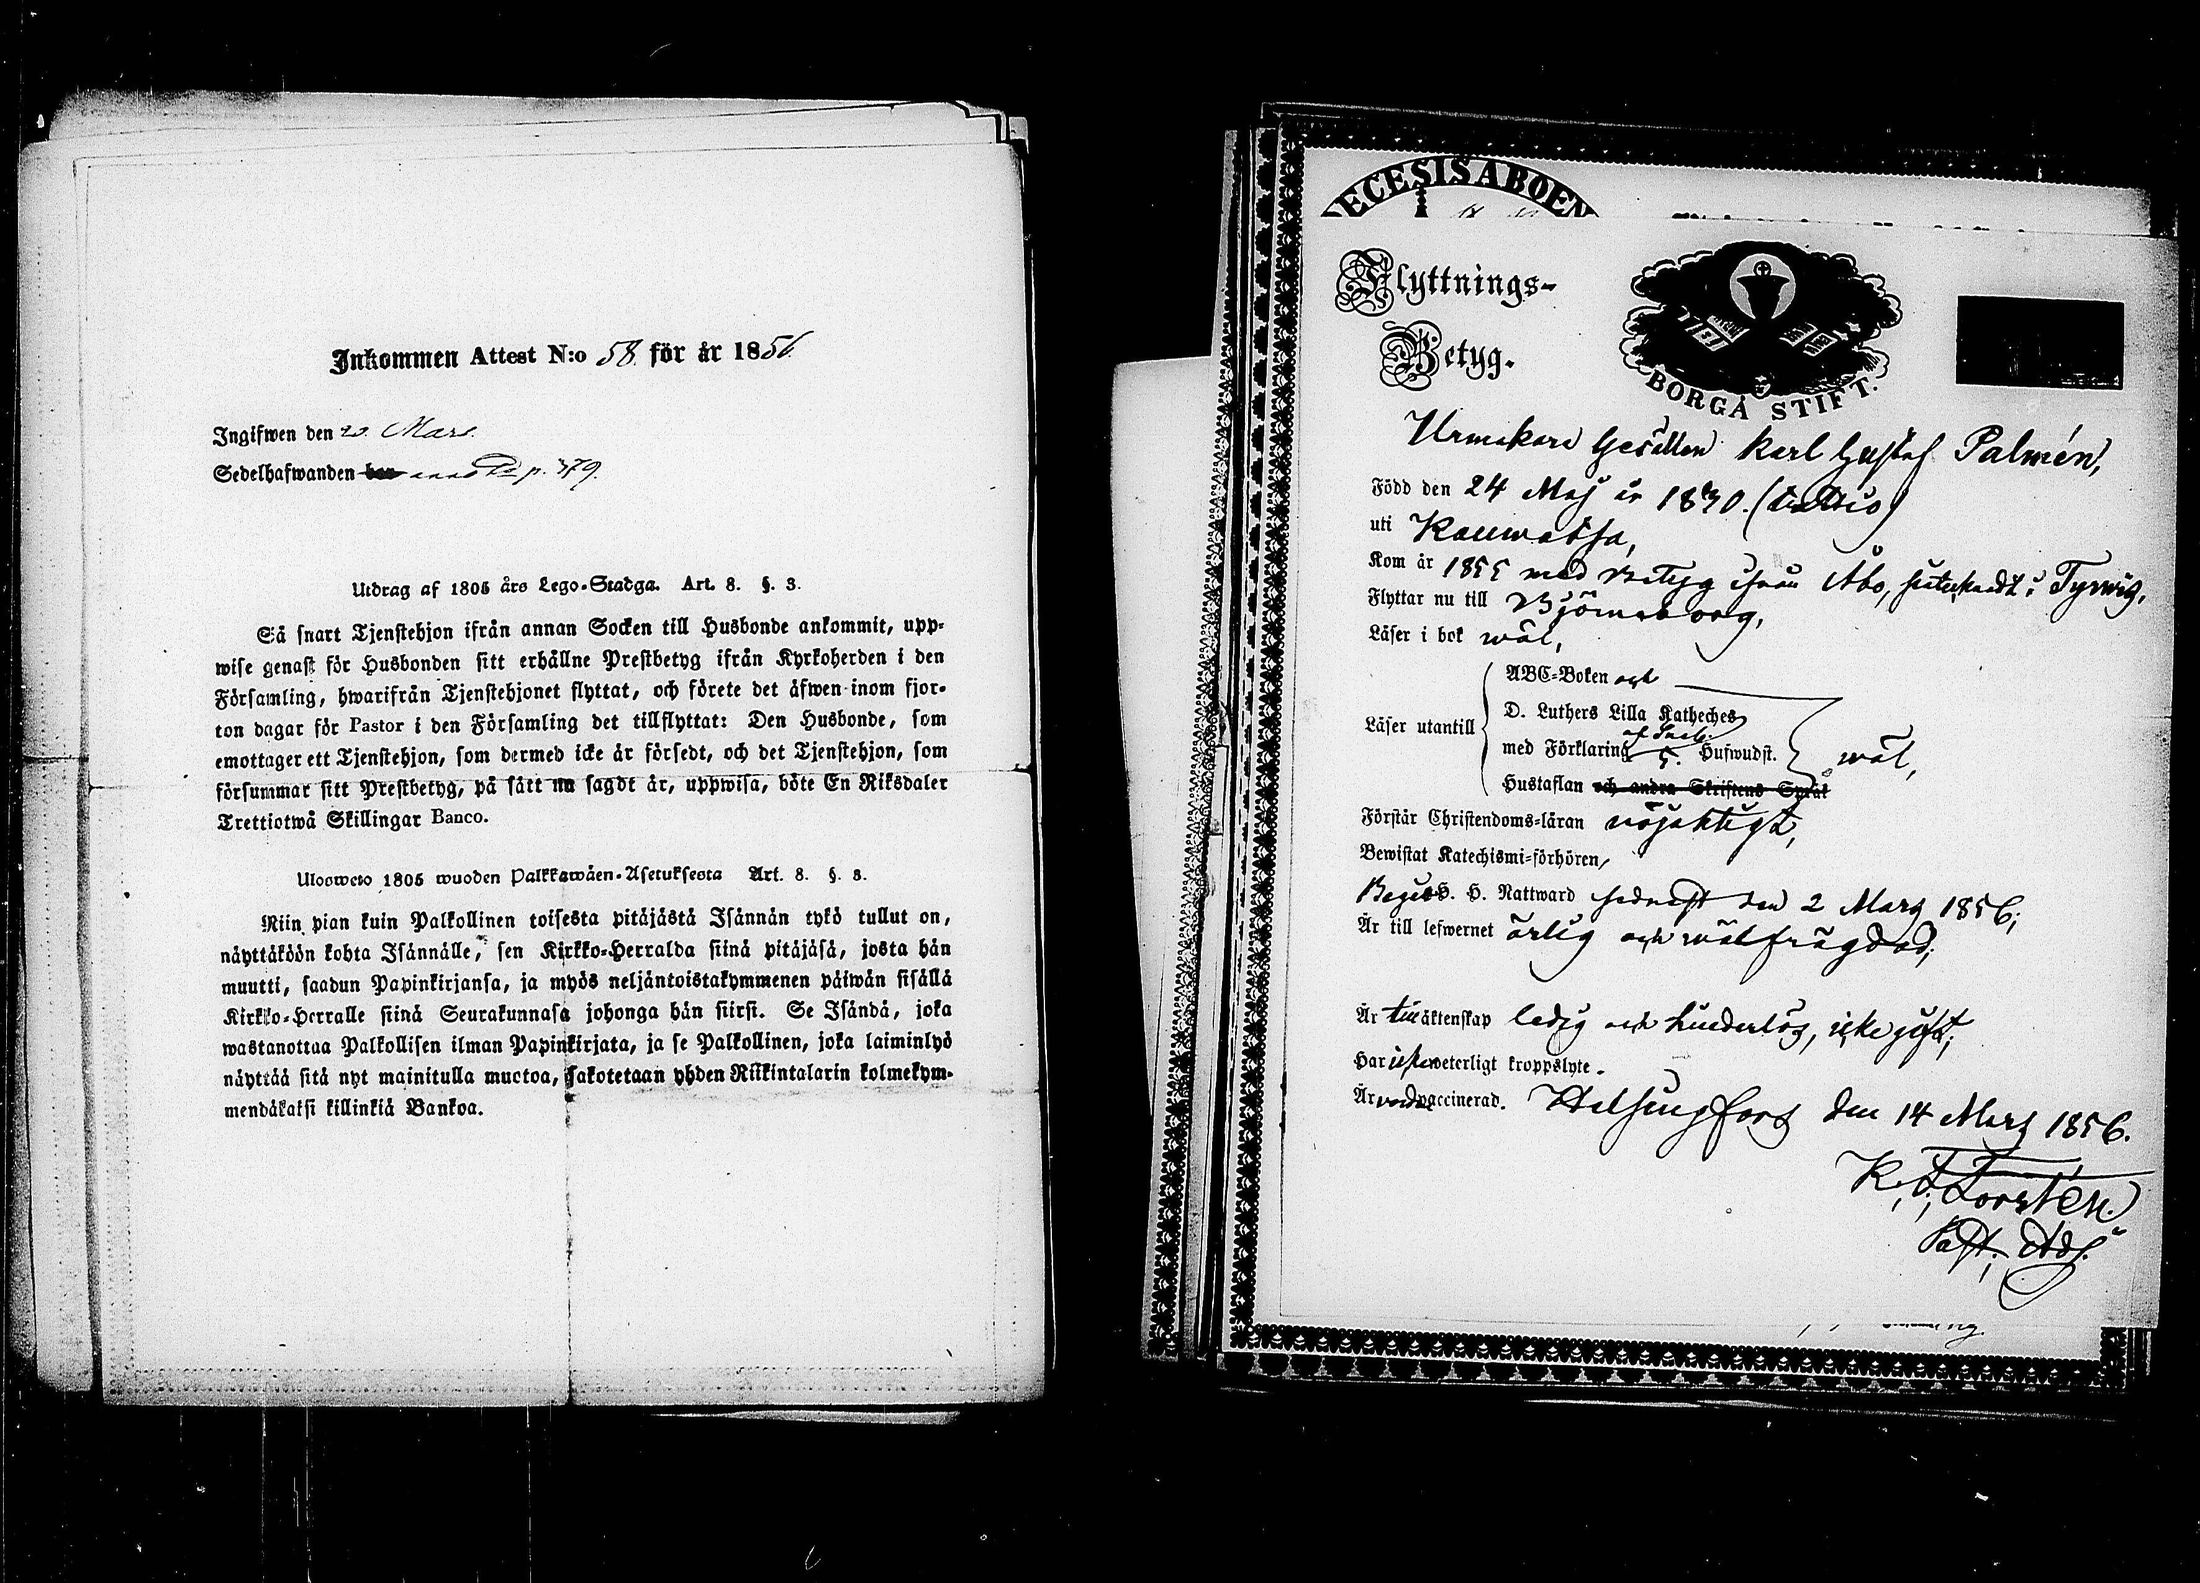 Inkommen Attest N:o 58. för år 1856.
Ingifwen den 20. Mars.
Sedelhafwanden p. 379.
Utdrag af 1805 års Lego-Stadga. Art. 8. §. 3.
Så snart Tjenstehjon ifrån annan Socken till Husbonde ankommit, upp-
wise genast för Husbonden sitt erhållne Prestbetyg ifrån Kyrkoherden i den
Församling, hwarifrån Tjenstehjonet flyttat, och förete det äfwen inom fjor-
ton dagar för Pastor i den Församling det tillflyttat: Den Husbonde, som
emottager ett Tjenstehjon, som dermed icke är försedt, och det Tjenstehjon, som
försummar sitt Prestbetyg, på sätt nu sagdt är, uppwisa, böte En Riksdaler
Trettiotwå Skillingar Banco.
Ulosweto 1805 wuoden Palkkawäen-Asetuksesta Art. 8. §. 3.
Niin pian kuin Palkollinen toisesta pitäjästä Isännän tykö tullut on,
näyttäköön kohta Isännälle, sen Kirkko-Herralda siinä pitäjäsä, josta hän
muutti, saadun Papinkirjansa, ja myös neljäntoistakymmenen päiwän sisällä
Kirkko-Herralle siinä Seurakunnasa johonga hän siirsi. Se Isändä, joka
wastanottaa Palkollisen ilman Papinkirjata, ja se Palkollinen, joka laiminlyö
näyttää sitä nyt mainitulla muotoa, sakotetaan yhden Riikintalarin kolmekym-
mendäkaksi killinkiä Bankoa.
ECESIS ABOEN
Flyttnings-
Betyg.
BORGÅ STIFT.
Urmakare Gesällen Karl Gustaf Palmén,
Född den 24 Maj år 1830. (trettio)
uti Kauwatsa,
Kom år 1855 med Betyg ifrån Åbo, i Tyrwis,
Flyttar nu till Björneborg,
Läser i bok wäl,
Läser utantill
ABC-Boken och
D. Luthers Lilla Katheches
med Förklaring af Sveb. 5. Hufwudst.
wäl,
Hustaflan och andra Skriftens Språk
Förstår Christendoms-läran nöjaktigt,
Bewistat Katechismi-förhören,
Begått H. H. Nattward sednast den 2 Mars 1856;
Är till lefwernet ärlig och wälfrägdad;
Är till äktenskap ledig och hinderlös, icke gift;
Har icke weterligt kroppslyte.
Är vaccinerad. Helsingfors den 14 Mars 1856.
K. F. Forstén.
Past. Adj.